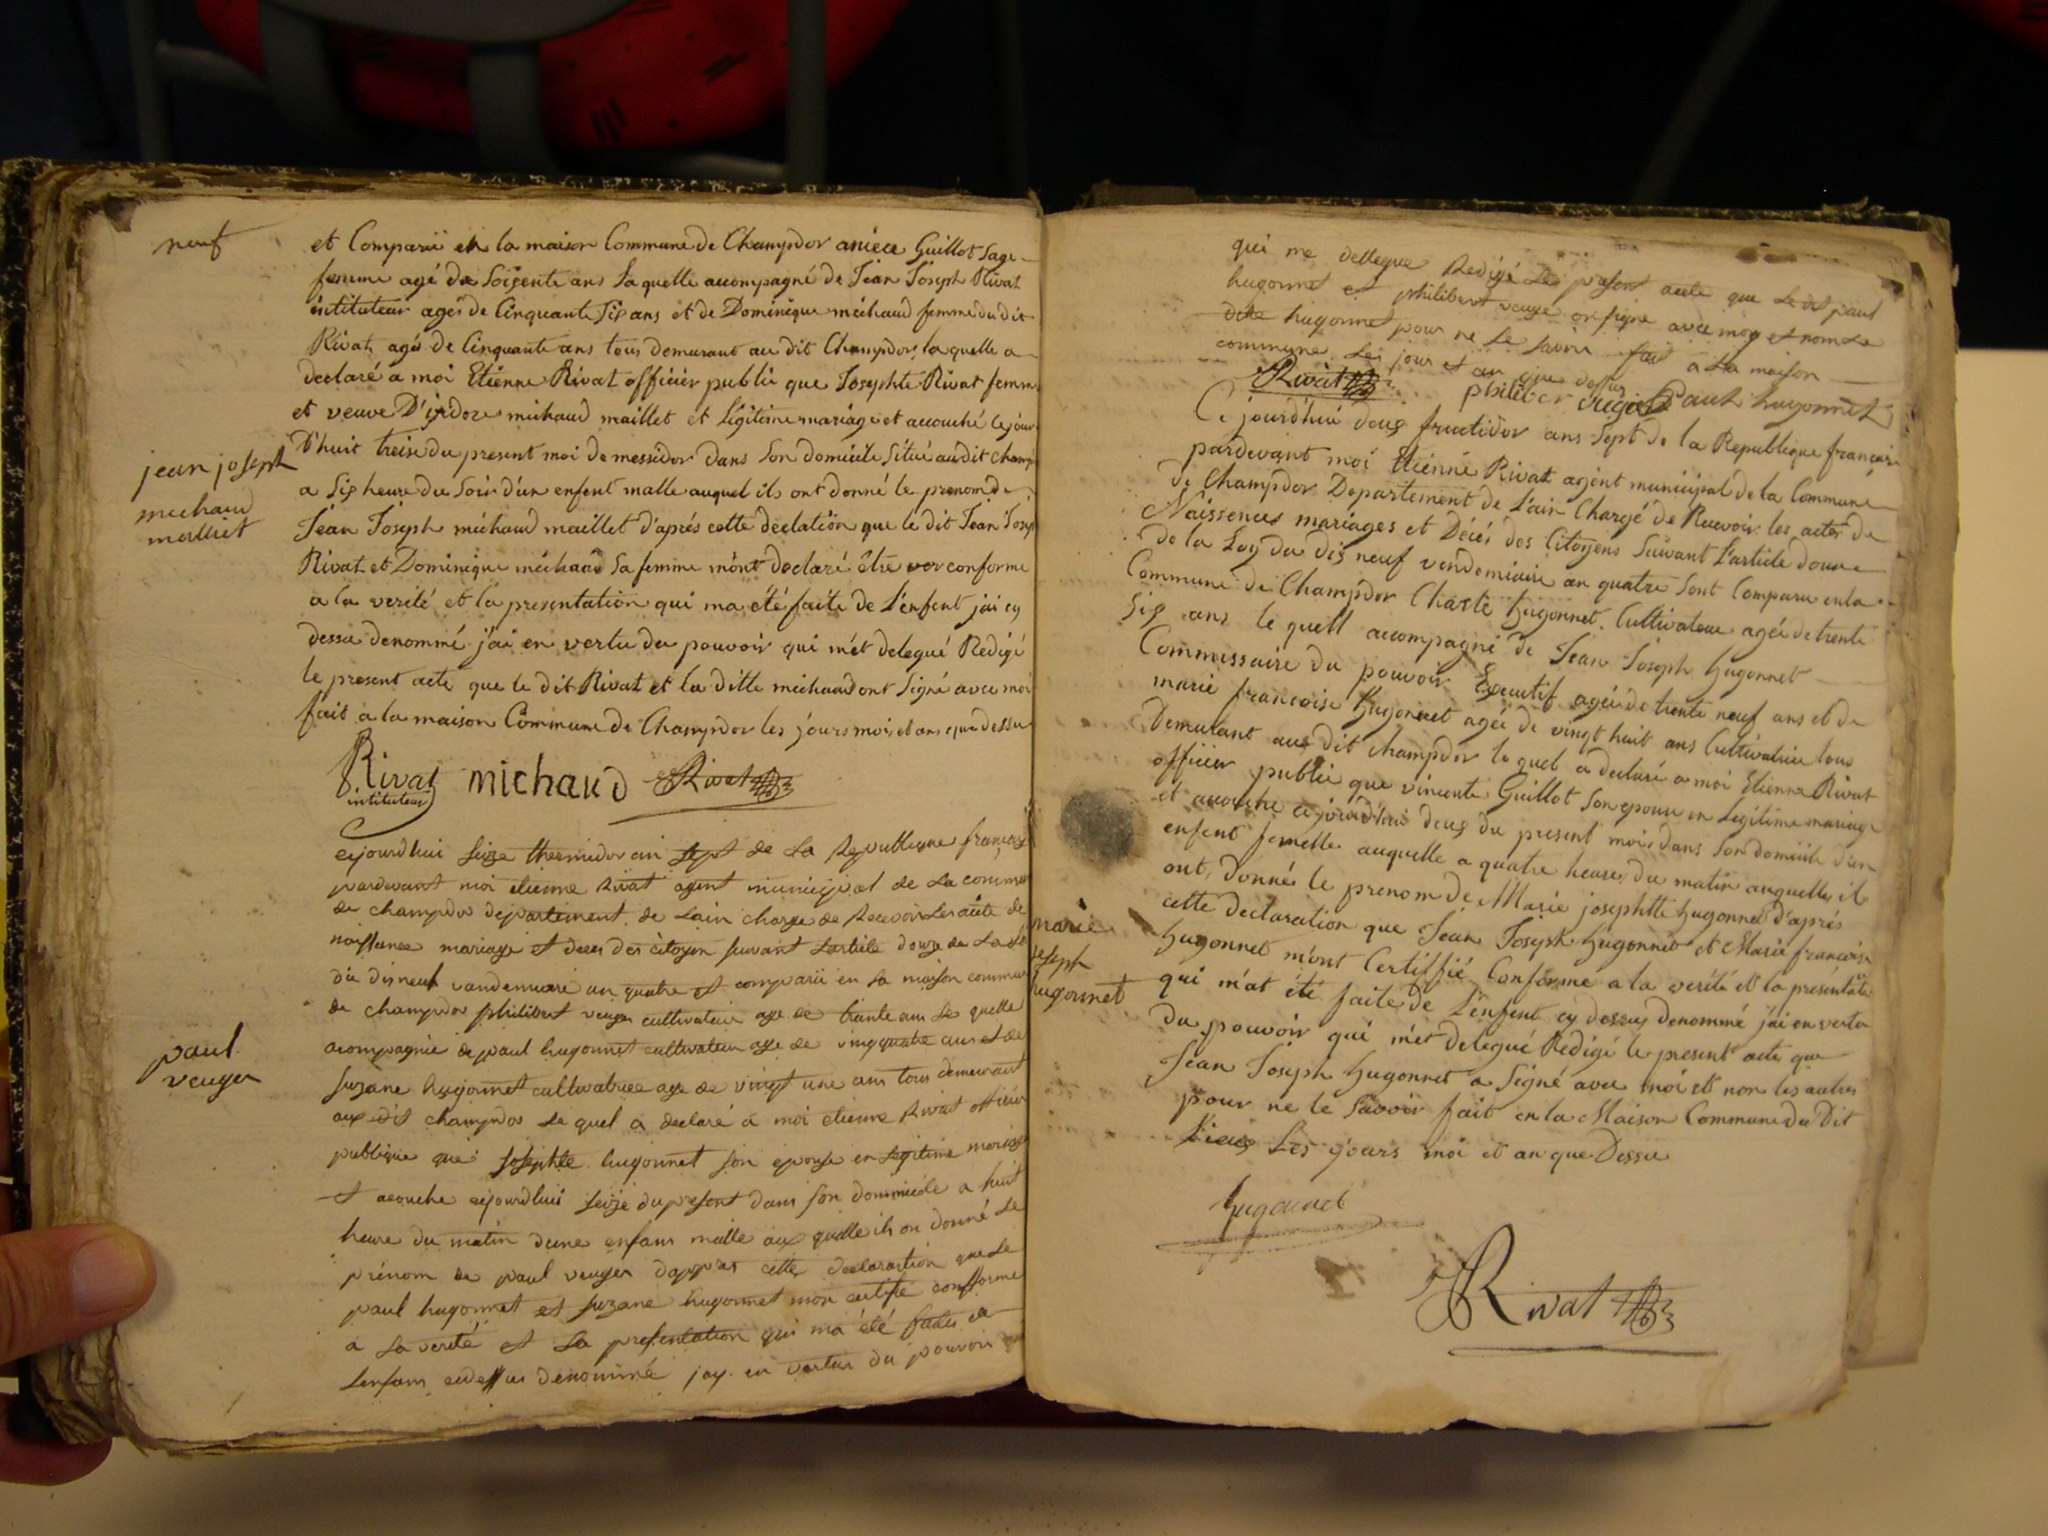 neuf
et Comparü en la maison Commune de Champdor aniece Guillot Sage
femme agé de Soisente ans laquelle accompagné de Jean Joseph Rivat
instituteur agés de Cinquante Six ans et de Dominique michaud femme du dit
Rivat agé de Cinquante ans tous demurant au dit Champdor, la quelle a
declaré a moi Etienne Rivat officier public que Josephte Rivat femme
et veuve D'isidore michaud maillet et Légitime mariage et acouché Ce jour
D'huit treise du present moi de messidor dans Son domicile Situé audit champ
jean joseph
michaud
malliet
a Six heure du Soir d'un enfent malle auquel ils ont donné le prenom de
Jean Joseph michaud maillet d'aprés cette declation que le dit Jean Josep
Rivat et Dominique michaud Sa femme m'ont declaré être ver conforme
a la verité et la presentation qui ma été faite de L'enfent jai cy
dessu denommé j'ai en vertu du pouvoir qui m'ét delegué Redigé
le present acte que le dit Rivat et la ditte michaud ont Signé avec moi
fait a la maison Commune de Champdor les jours mois et ans que dessu
Rivat michaud Rivat
instituteur
Cejourdhui seize thermidor an sept de la Republique françaisse
pardevant moi etienne Rivat agent municipal de La commun
de champdor departement de Lain charge de Recevoir Les acte de
naissance mariage et deces des citoyen suivant Larticle douze de La Loi
du disneuf vandemiaire an quatre et comparü en La maison commun
de champdor philibert veuger cultivateur age de trante ans Le quelle
paul
veuger
acompagnie de paul hugonnet cultivateur age de vingquatre ans et de
suzane hugonnet cultivatrice age de vingt une ans tous demeurant
aux dit champdor Le quel a declaré a moi etienne Rivat officier
publique que josephte hugonnet son epouse en Legitime mariage
et acouche cejourdhui seize du present dans son dommicile a huit
heure du matin dune enfans malle aux quelle ils on donné Le
prénom de paul veuger dappres cette declarastion que Le
paul hugonnet et suzane hugonnet mon certifie conforme
a La verité et La presentation qui ma été faites de
Lenfans cidessus denommé jay en vertus du pouvoir
qui me dellegue Redigé Le present acte que Le dit paul
hugonnet et philibert veuge on signe avec moy et non La
dite hugonnet pour ne Le savoir fait a La maison
commune Les jour et an que dessus
Rivat philiber veuger Paul hugonnet
Ce jourd'hui deux fructidor ans Sept de la Republique français
pardevant moi Etienne Rivat agent municipal de la Commune
de Champdor Departement de L'ain Chargé de Recevoir les actes de
Naissences mariages et Décés des Citoyens Suivant L'article douse
de la Loy du dix neuf vendemiaire an quatre Sont Comparu en la
Commune de Champdor Charle hugonnet Cultivateur agée de trente
Six ans le quell accompagné de Jean Joseph hugonnet
Commissaire du pouvoir Executif agée de trente neuf ans et de
marie francoise hugonnet agée de vingt huit ans Cultivatrice tous
Demurant aux dit champdor le quel a declaré a moi Etienne Rivat
officier public que vincente Guillot Son epouse en Légitime mariage
et acouche ce jourd'hui deux du present mois dans Son domicile d'un
enfent femelle auquelle a quatre heures du matin auquelles il
ont donnés le prenom de Marie josephtte hugonnet d'aprés
marie
joseph
hugonnet
cette declaration que Jean Joseph hugonnet et Marie francoise
hugonnet m'ont Certiffié Conforme a la verité et la presentati
qui m'at été faite de L'enfent cy dessus denommé j'ai en vertu
du pouvoir qui m'ét delegué Redigé le present acte que
Jean Joseph hugonnet a Signé avec moi et non les autres
pour ne le Savoir fait en la Maison Commune du Dit
Lieux Les jours moi et an que Dessu
hugonnet
Rivat